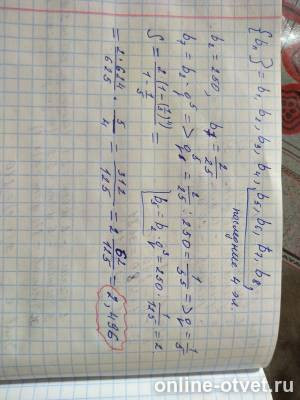 {bₙ} = b₁, b₂, b₃, b₄, b₅, b₆, b₇, b₈,
последние 4 эл.
b₂ = 250, b₇ = 2/25
b₇ = b₂ · q⁵ => q⁵ = 2/25 : 250 = 1/5⁵ => q = 1/5
b₅ = b₂ · q³ = 250 · 1/125 = 2
S = 2(1 − (1/5)⁴) / (1 − 1/5) =
= 2 · 624/625 · 5/4 = 312/125 = 2 62/125 = 2,496
online-otvet.ru